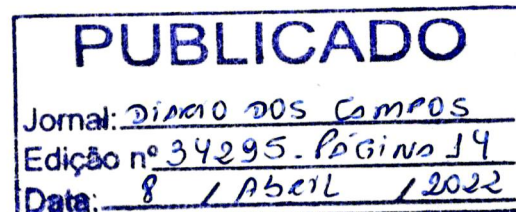 PUBLICADO
Jornal: DIARIO DOS CAMPOS
Edição nº 34295. PÁGINA 14
Data: 8 / Abril / 2022